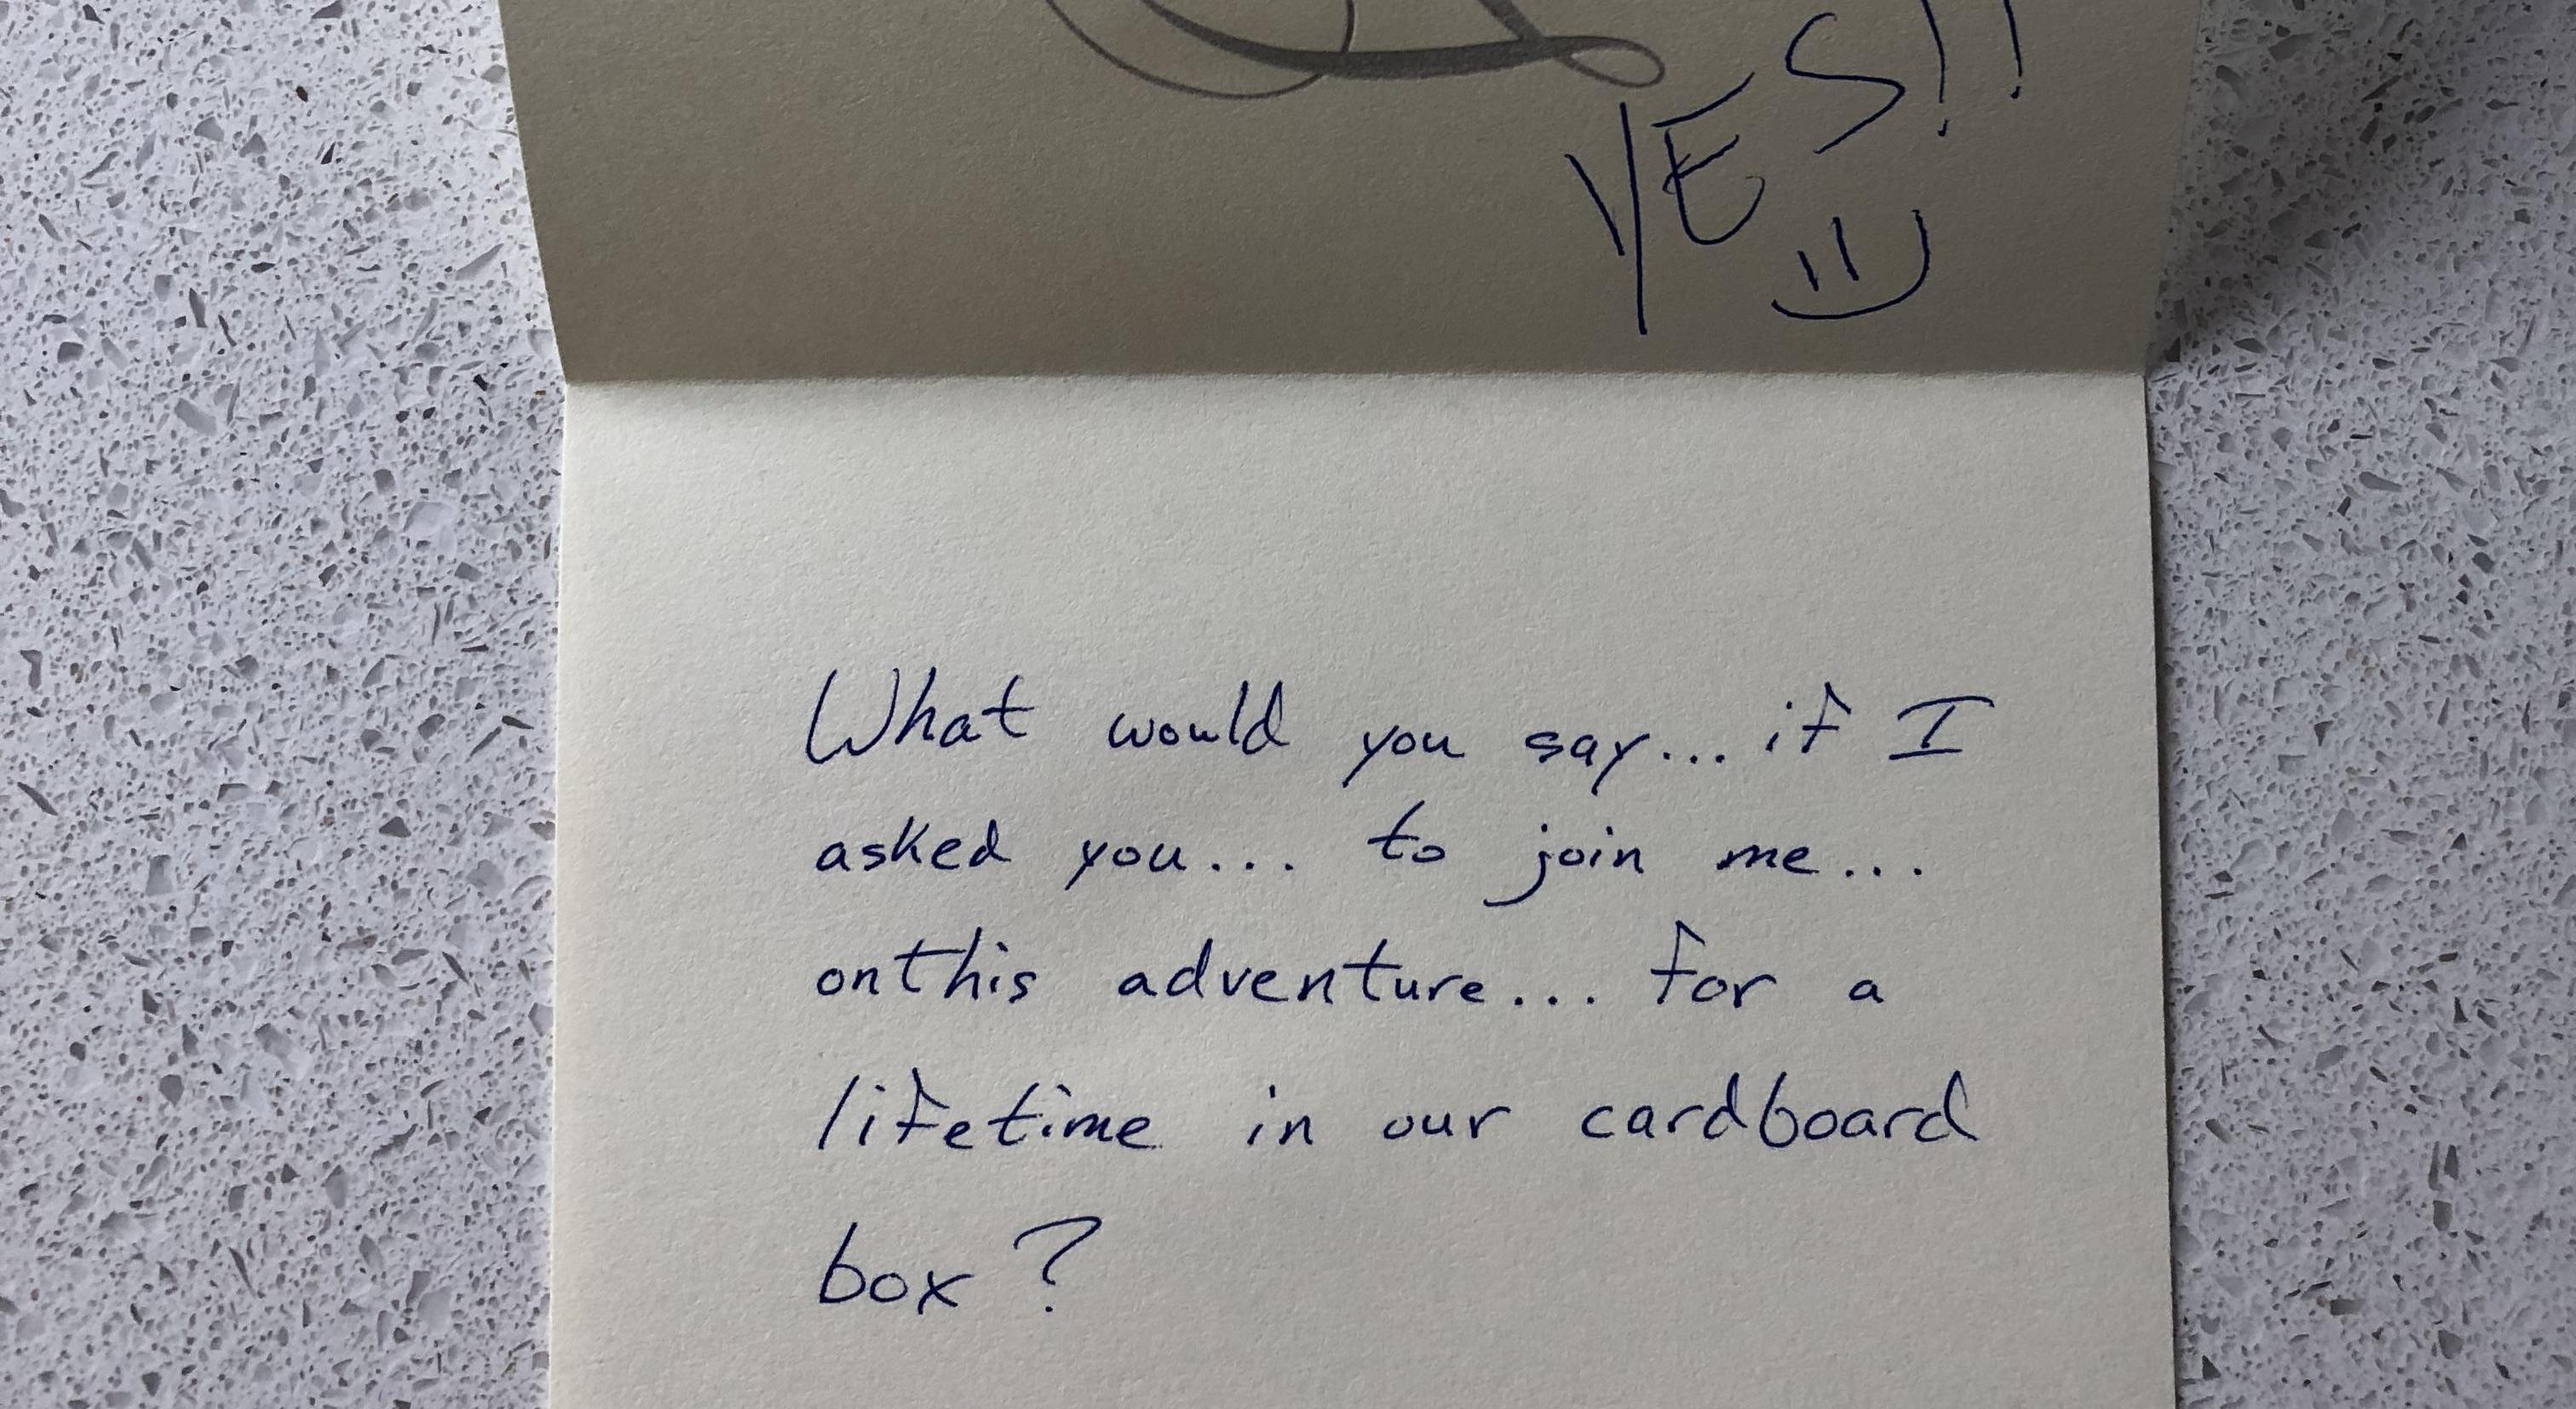 YES!!
What would you say... if I
asked you... to join me...
onthis adventure... for a
lifetime in our cardboard
box?